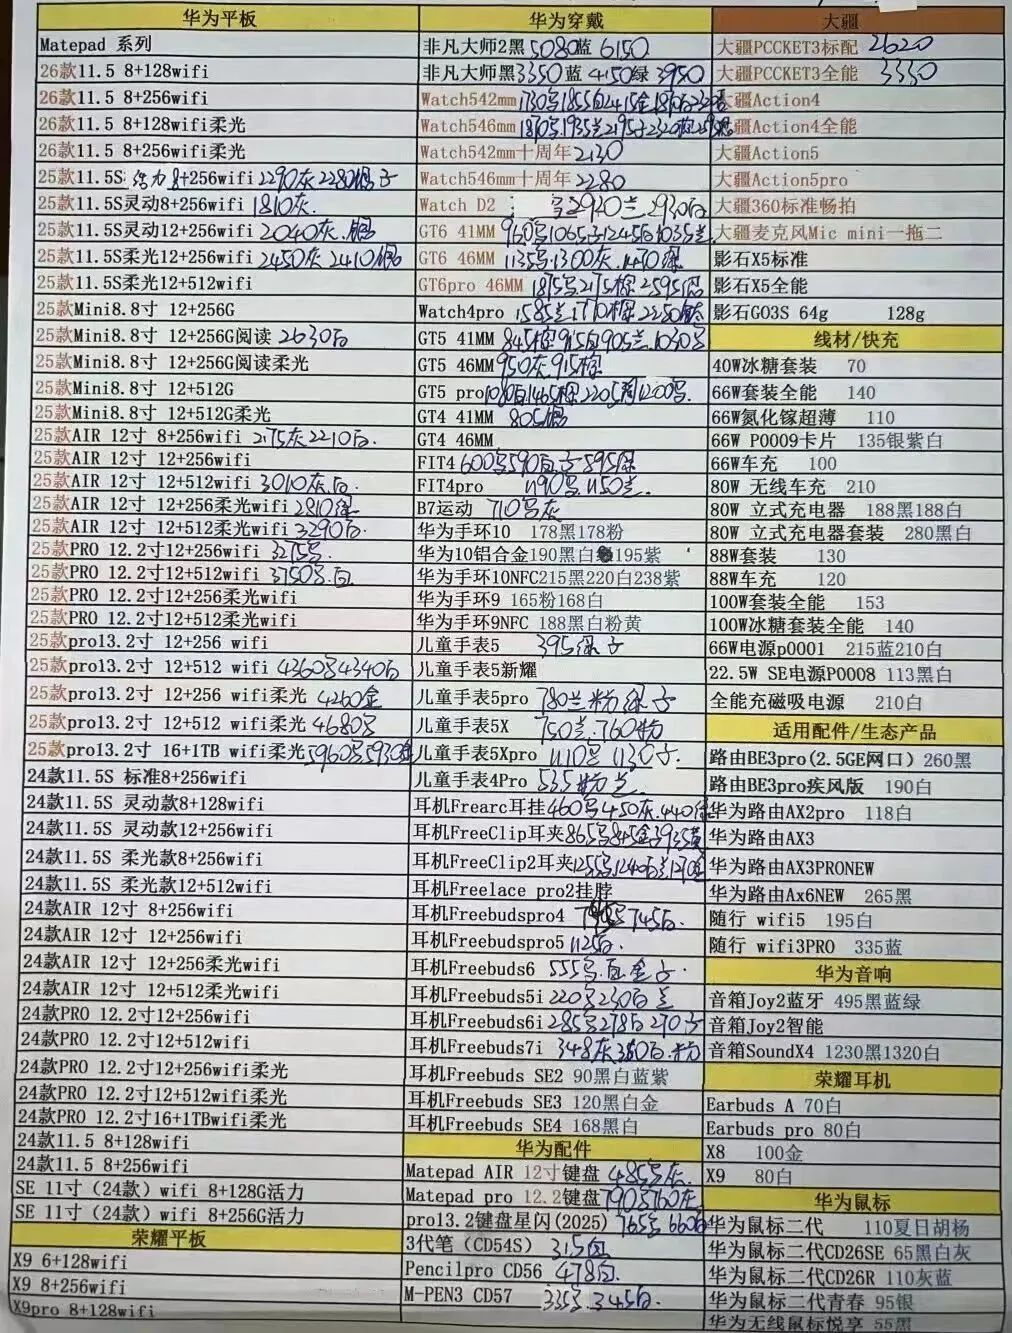 华为平板
Matepad 系列
26款11.5 8+128wifi
26款11.5 8+256wifi
26款11.5 8+128wifi柔光
26款11.5 8+256wifi柔光
25款11.5S 活力8+256wifi 2290灰2280
25款11.5S灵动8+256wifi 1810灰.
25款11.5S灵动12+256wifi 2040灰.银
25款11.5S柔光12+256wifi 2450灰 2410银
25款11.5S柔光12+512wifi
25款Mini8.8寸 12+256G
25款Mini8.8寸 12+256G阅读 2630白
25款Mini8.8寸 12+256G阅读柔光
25款Mini8.8寸 12+512G
25款Mini8.8寸 12+512G柔光
25款AIR 12寸 8+256wifi 2175灰2210白.
25款AIR 12寸 12+256wifi
25款AIR 12寸 12+512wifi 3010灰.白.
25款AIR 12寸 12+256柔光wifi 2810绿
25款AIR 12寸 12+512柔光wifi 3290白.
25款PRO 12.2寸12+256wifi 3275
25款PRO 12.2寸12+512wifi 3750 白
25款PRO 12.2寸12+256柔光wifi
25款PRO 12.2寸12+512柔光wifi
25款pro13.2寸 12+256 wifi
25款pro13.2寸 12+512 wifi 4360 4340白
25款pro13.2寸 12+256 wifi柔光 4260金
25款pro13.2寸 12+512 wifi柔光 4680
25款pro13.2寸 16+1TB wifi柔光5960 5930
24款11.5S 标准8+256wifi
24款11.5S 灵动款8+128wifi
24款11.5S 灵动款12+256wifi
24款11.5S 柔光款8+256wifi
24款11.5S 柔光款12+512wifi
24款AIR 12寸 8+256wifi
24款AIR 12寸 12+256wifi
24款AIR 12寸 12+256柔光wifi
24款AIR 12寸 12+512柔光wifi
24款PRO 12.2寸12+256wifi
24款PRO 12.2寸12+512wifi
24款PRO 12.2寸12+256wifi柔光
24款PRO 12.2寸12+512wifi柔光
24款PRO 12.2寸16+1TBwifi柔光
24款11.5 8+128wifi
24款11.5 8+256wifi
SE 11寸（24款）wifi 8+128G活力
SE 11寸（24款）wifi 8+256G活力
荣耀平板
X9 6+128wifi
X9 8+256wifi
X9pro 8+128wifi
华为穿戴
非凡大师2黑5080蓝 6150
非凡大师黑3350蓝 4150绿 3950
Watch542mm
Watch546mm
Watch542mm十周年2130
Watch546mm十周年2280
Watch D2 2920兰 2930白
GT6 41MM 960 1065 1245白1035兰
GT6 46MM 1135 1300灰
GT6pro 46MM 1875 2175棕 2595
Watch4pro 1585兰
GT5 41MM 845棕915白905兰1030
GT5 46MM 950灰 915棕
GT5 pro 1465棕 2205 1200
GT4 41MM 805
GT4 46MM
FIT4 600 590白 595绿
FIT4pro 1190 1150兰.
B7运动 710 灰
华为手环10 178黑178粉
华为10铝合金190黑白 195紫
华为手环10NFC215黑220白238紫
华为手环9 165粉168白
华为手环9NFC 188黑白粉黄
儿童手表5 395
儿童手表5新耀
儿童手表5pro 780兰粉
儿童手表5X 750兰.760粉
儿童手表5Xpro 1110 1130
儿童手表4Pro 535粉兰.
耳机Frearc耳挂460 450灰.440绿
耳机FreeClip耳夹865 845金
耳机FreeClip2耳夹1255 1240白兰
耳机Freelace pro2挂脖
耳机Freebudspro4 745白.
耳机Freebudspro5 1125白.
耳机Freebuds6 555 白金
耳机Freebuds5i 220 230白兰
耳机Freebuds6i 285 278白 270
耳机Freebuds7i 348灰350白.粉
耳机Freebuds SE2 90黑白蓝紫
耳机Freebuds SE3 120黑白金
耳机Freebuds SE4 168黑白
华为配件
Matepad AIR 12寸键盘 485 灰
Matepad pro 12.2键盘790 760灰
pro13.2键盘星闪(2025) 765 660白
3代笔（CD54S） 315白
Pencilpro CD56 478白.
M-PEN3 CD57 335 345白.
大疆
大疆PCCKET3标配 2620
大疆PCCKET3全能 3330
大疆Action4
大疆Action4全能
大疆Action5
大疆Action5pro
大疆360标准畅拍
大疆麦克风Mic mini一拖二
影石X5标准
影石X5全能
影石GO3S 64g 128g
线材/快充
40W冰糖套装 70
66W套装全能 140
66W氮化镓超薄 110
66W P0009卡片 135银紫白
66W车充 100
80W 无线车充 210
80W 立式充电器 188黑188白
80W 立式充电器套装 280黑白
88W套装 130
88W车充 120
100W套装全能 153
100W冰糖套装全能 140
66W电源p0001 215蓝210白
22.5W SE电源P0008 113黑白
全能充磁吸电源 210白
适用配件/生态产品
路由BE3pro(2.5GE网口) 260黑
路由BE3pro疾风版 190白
华为路由AX2pro 118白
华为路由AX3
华为路由AX3PRONEW
华为路由Ax6NEW 265黑
随行 wifi5 195白
随行 wifi3PRO 335蓝
华为音响
音箱Joy2蓝牙 495黑蓝绿
音箱Joy2智能
音箱SoundX4 1230黑1320白
荣耀耳机
Earbuds A 70白
Earbuds pro 80白
X8 100金
X9 80白
华为鼠标
华为鼠标二代 110夏日胡杨
华为鼠标二代CD26SE 65黑白灰
华为鼠标二代CD26R 110灰蓝
华为鼠标二代青春 95银
华为无线鼠标悦享 55黑